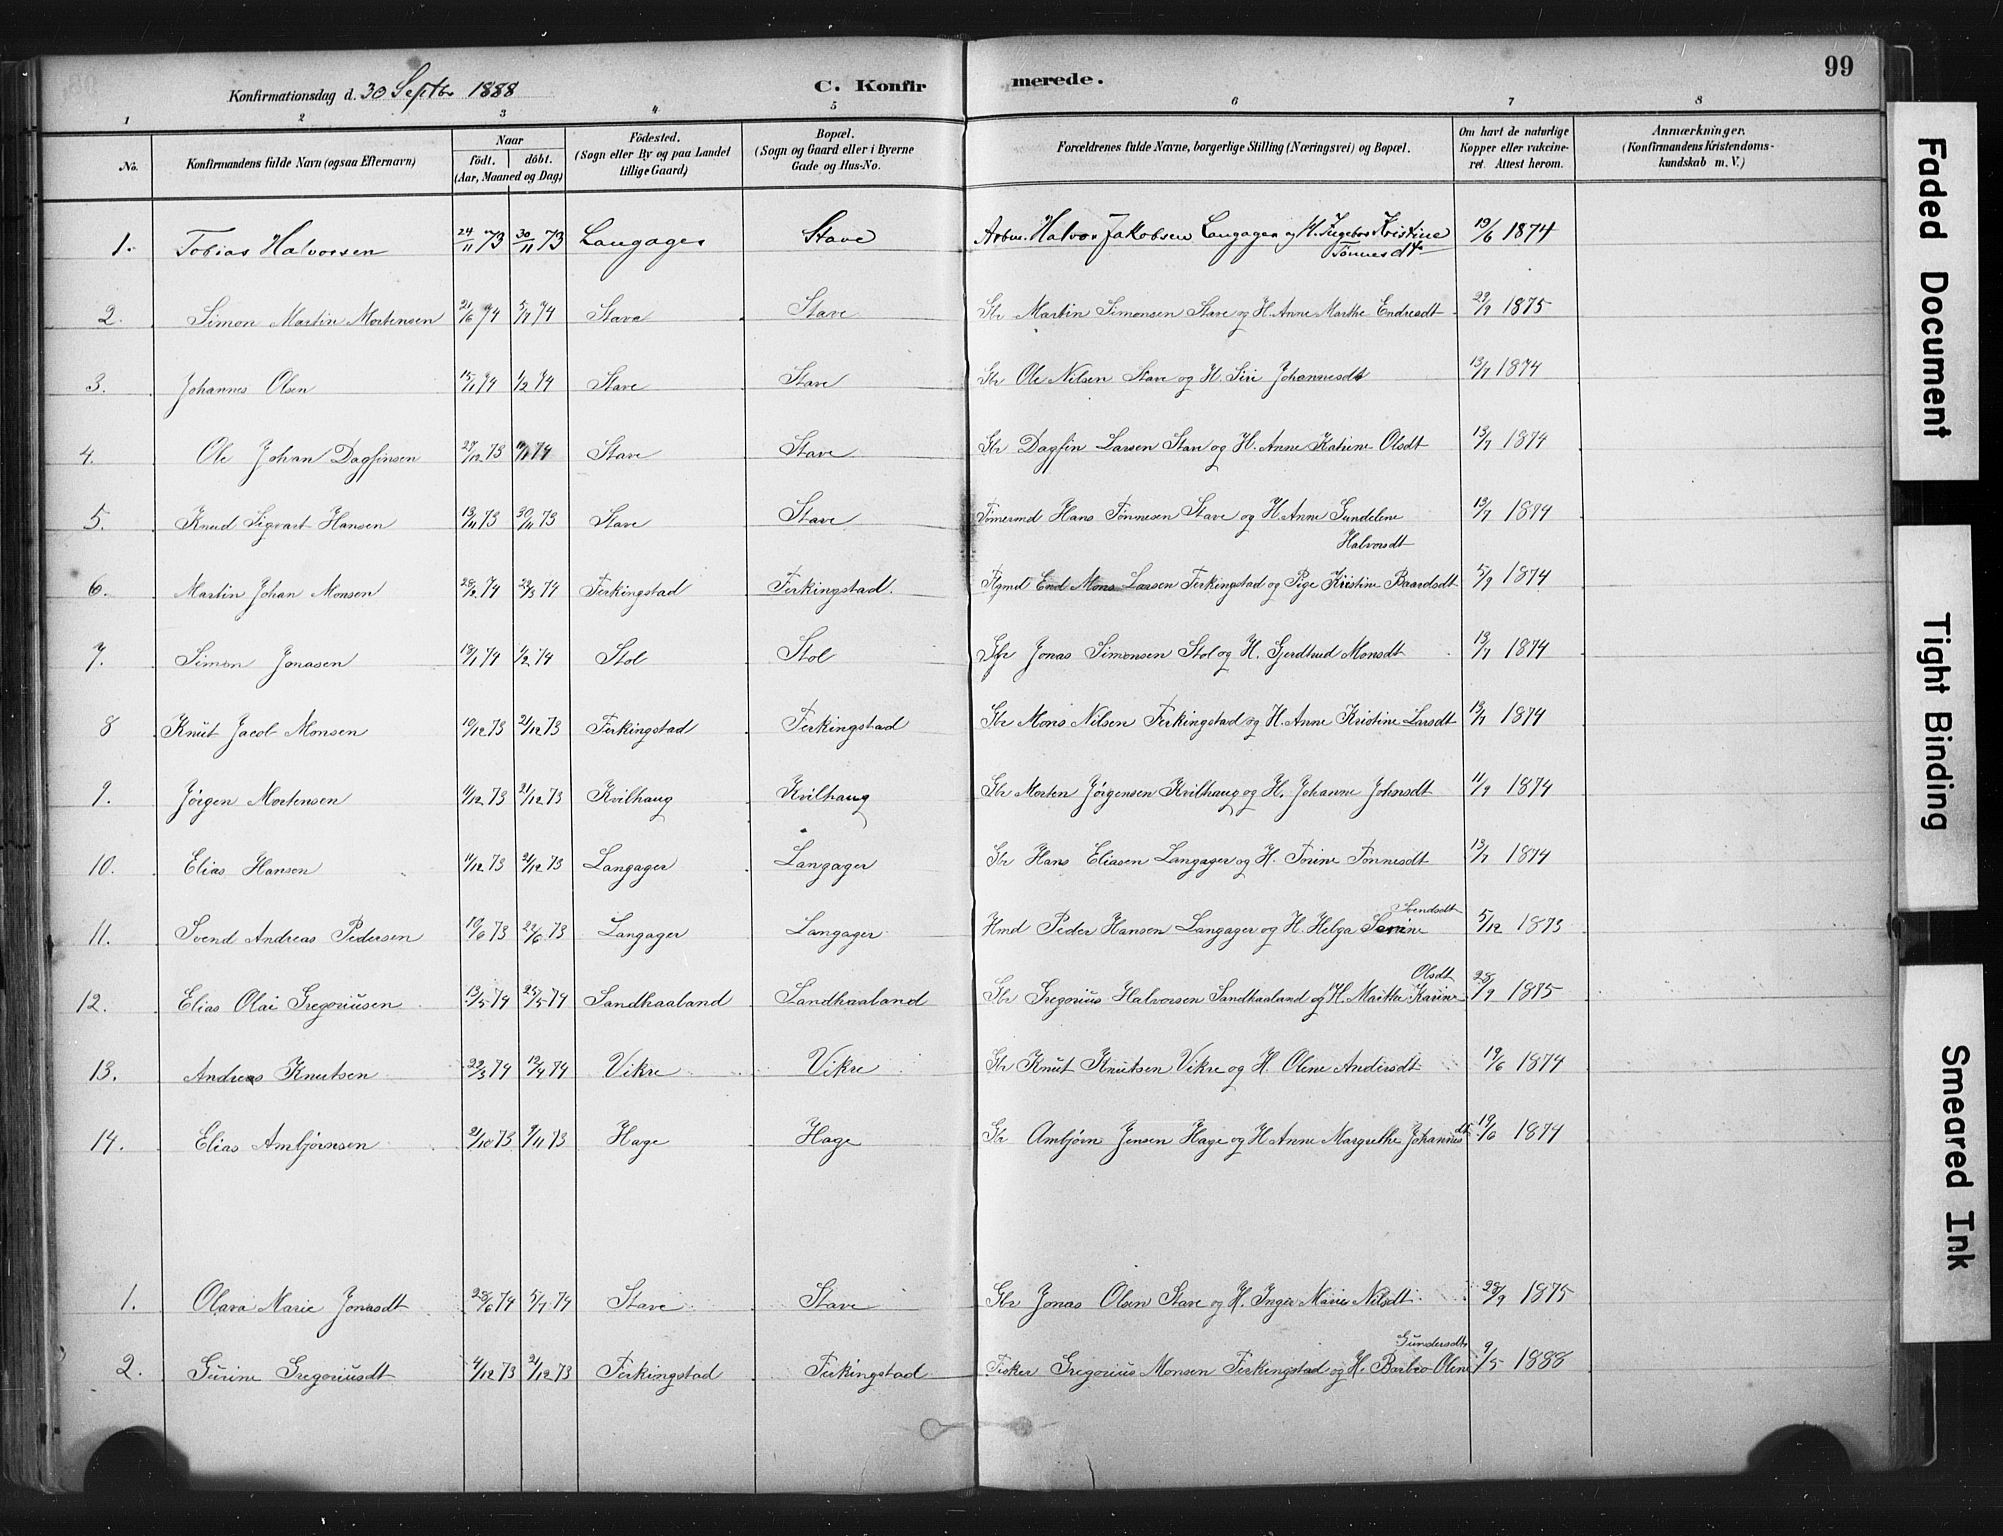 99
Konfirmationsdag d. 30 Septbr 1888
C. Konfirmerede.
1 2 3 4 5 6 7 8
No. Konfirmandens fulde Navn (ogsaa Efternavn) Naar födt. döbt. (Aar, Maaned og Dag) Födested. (Sogn eller By og paa Landet tillige Gaard) Bopæl. (Sogn og Gaard eller i Byerne Gade og Hus-No. Forældrenes fulde Navne, borgerlige Stilling (Næringsvei) og Bopæl. Om havt de naturlige Kopper eller vakcineret. Attest herom. Anmærkninger. (Konfirmandens Kristendomskundskab m. V.)
1. Tobias Halvorsen 24/11 73 30/11 73 Langager Stave Arbm. Halvor Jakobsen Langager og H. Ingebor Kristine Tönnesdt 19/6 1874
2. Simon Martin Mortensen 21/6 74 5/7 74 Stave Stave Gbr Martin Simonsen Stave og H. Anne Marthe Endresdt 29/9 1875
3. Johannes Olsen 15/1 74 1/2 74 Stave Stave Gbr Ole Nilsen Stave og H. Siri Johannesdt 13/7 1874
4. Ole Johan Dagfinsen 27/12 73 74 Stave Stave Gbr Dagfin Larsen Stave og H. Anne Katrine Olsdt 13/7 1874
5. Knud Sigvart Hansen 13/11 73 30/11 73 Stave Stave Tömermd Hans Tönnesen Stave og H. Anne Gundelene Halvorsdt 13/7 1874
6. Martin Johan Monsen 28/2 74 22/3 74 Ferkingstad Ferkingstad Mons Larsen Ferkingstad og Pige Kristine Baardsdt 5/9 1874
7. Simon Jonasen 18/1 74 1/2 74 Stol Stol Gbr Jonas Simonsen Stol og H. Gjerdtrud Monsdt 13/7 1874
8 Knut Jacob Monsen 10/12 73 21/12 73 Ferkingstad Ferkingstad Gbr Mons Nilsen Ferkingstad og H. Anne Kristine Larsdt 13/7 1874
9. Jörgen Mortensen 4/12 73 21/12 73 Kvilhaug Kvilhaug Gbr Morten Jörgensen Kvilhaug og H. Johanne Johnsdt 11/9 1874
10. Elias Hansen 11/12 73 21/12 73 Langager Langager Gbr Hans Eliasen Langager og H. Torine Tönnesdt 13/7 1874
11. Svend Andreas Pedersen 10/6 73 22/6 73 Langager Langager Hmd Peder Hansen Langager og H. Helga Serine Svendsdt 5/12 1873
12. Elias Olai Gregoriusen 13/5 74 25/5 74 Sandhaaland Sandhaaland Gbr Gregorius Halvorsen Sandhaaland og H. Martha Karine Olsdt 28/9 1875
13. Andreas Knutsen 22/3 74 12/4 74 Vikre Vikre Gbr Knut Knutsen Vikre og H. Olene Andersdt 19/6 1874
14. Elias Ambjörnsen 2/10 73 9/11 73 Hage Hage Gbr Ambjörn Jensen Hage og H Anne Margrethe Johannesdt 19/6 1874
1. Olava Marie Jonasdt 28/6 74 5/7 74 Stave Stave Gbr Jonas Olsen Stave og H. Inger Marie Nilsdt 28/9 1875
2. Gurine Gregoriusdt 4/12 73 21/12 73 Ferkingstad Ferkingstad Fisker Gregorius Monsen Ferkingstad og H. Barbro Olene Gundersdt 9/5 1888
Faded Document
Tight Binding
Smeared Ink